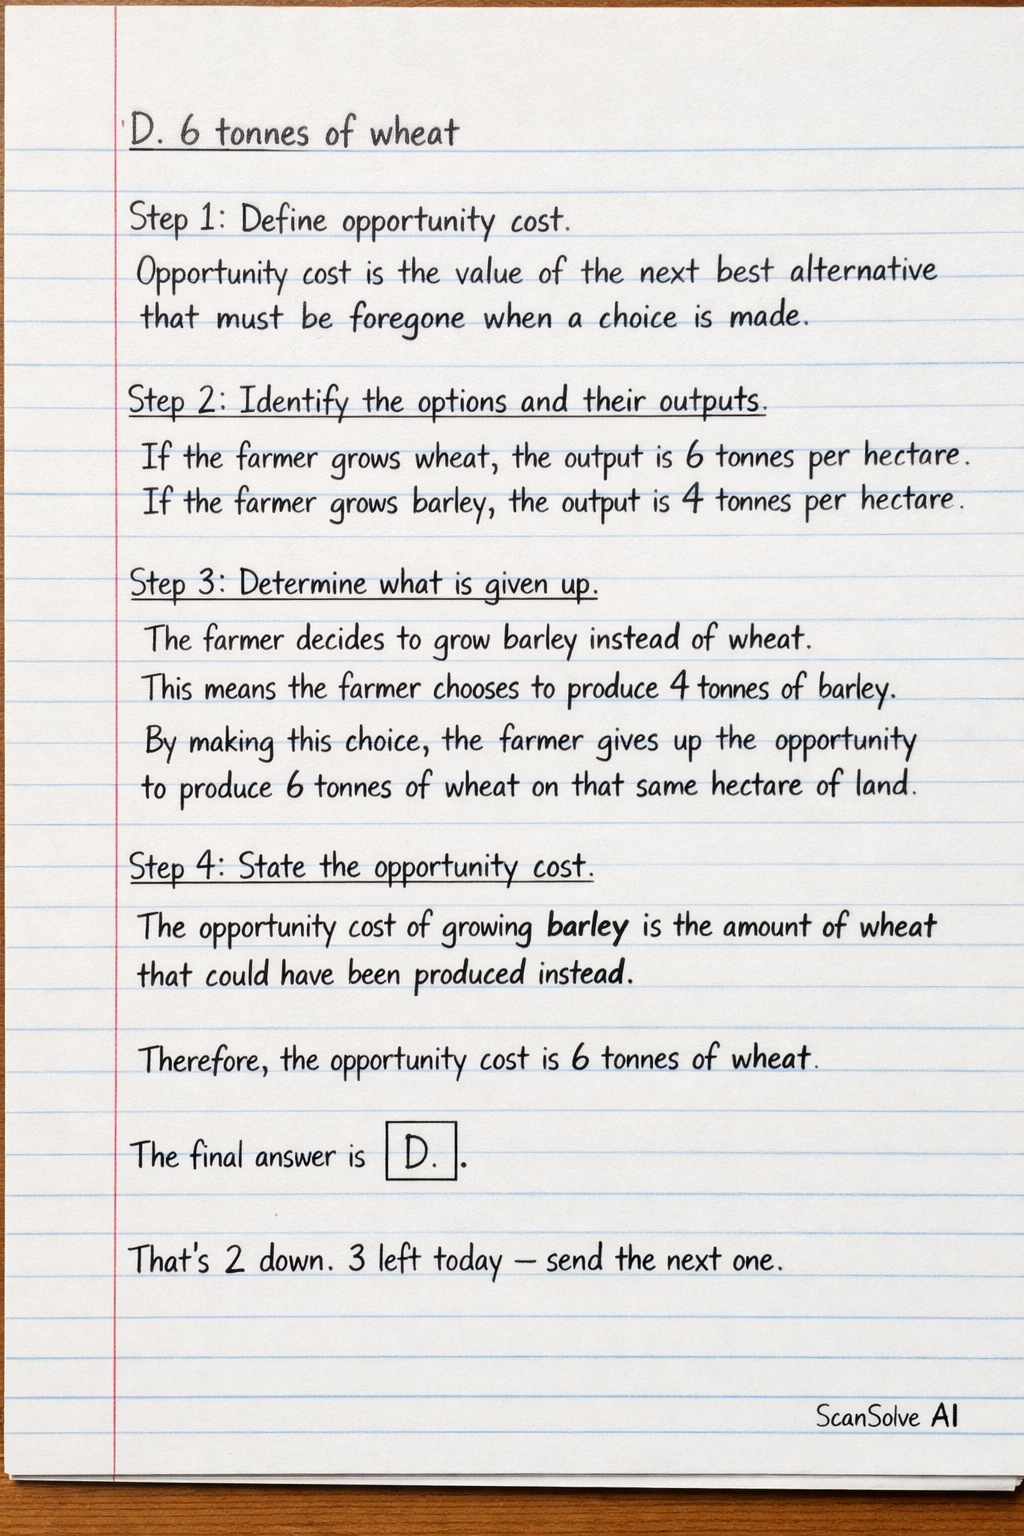 D. 6 tonnes of wheat
Step 1: Define opportunity cost.
Opportunity cost is the value of the next best alternative
that must be foregone when a choice is made.
Step 2: Identify the options and their outputs.
If the farmer grows wheat, the output is 6 tonnes per hectare.
If the farmer grows barley, the output is 4 tonnes per hectare.
Step 3: Determine what is given up.
The farmer decides to grow barley instead of wheat.
This means the farmer chooses to produce 4 tonnes of barley.
By making this choice, the farmer gives up the opportunity
to produce 6 tonnes of wheat on that same hectare of land.
Step 4: State the opportunity cost.
The opportunity cost of growing barley is the amount of wheat
that could have been produced instead.
Therefore, the opportunity cost is 6 tonnes of wheat.
The final answer is D. .
That's 2 down. 3 left today — send the next one.
ScanSolve AI